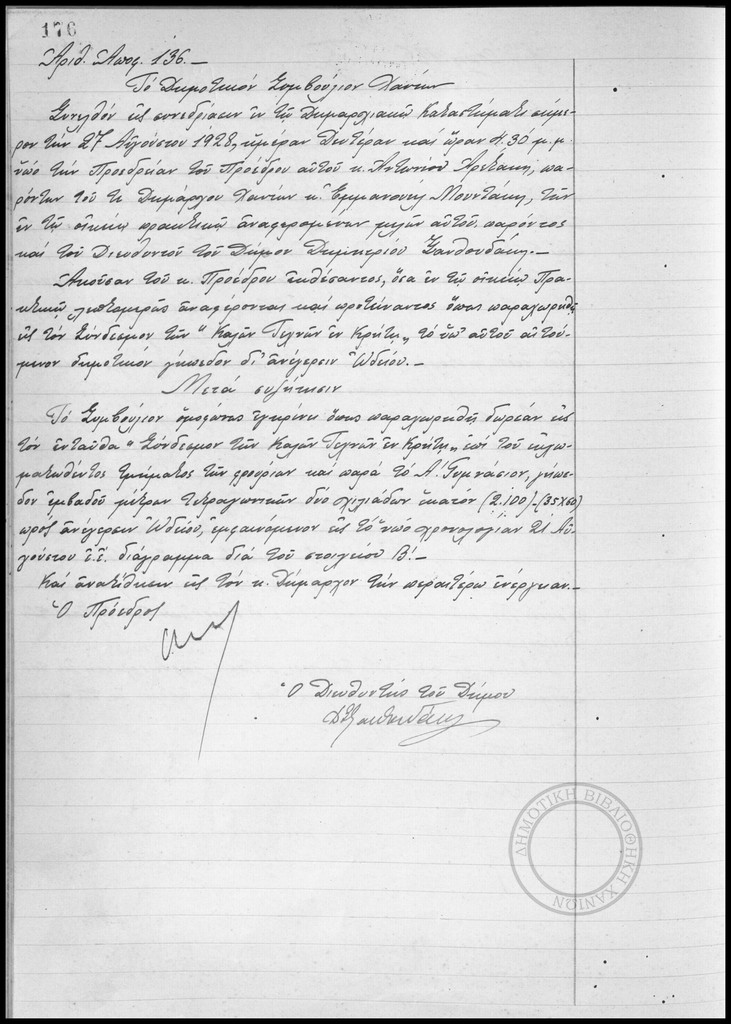 176
Ἀριθ. Ἀποφ. 136.–
Τό Δημοτικόν Συμβούλιον Χανίων
Συνελθόν εἰς συνεδρίασιν ἐν τῷ Δημαρχιακῷ Καταστήματι σήμε-
ρον τήν 27 Αὐγούστου 1928, ἡμέραν Δευτέραν καί ὥραν 4.30 μ.μ.
ὑπό τήν Προεδρείαν τοῦ Προέδρου αὐτοῦ κ. Ἀντωνίου Ἀρετάκη, πα-
ρόντων τοῦ κ. Δημάρχου Χανίων κ. Ἐμμανουήλ Μουντάκη, τῶν
ἐν τῷ οἰκείῳ πρακτικῷ ἀναφερομένων μελῶν αὐτοῦ, παρόντος
καί τοῦ Διευθυντοῦ τοῦ Δήμου Δημητρίου Ξανθουδάκη.–
Ἀκοῦσαν τοῦ κ. Προέδρου ἐκθέσαντος, ὅσα ἐν τῷ οἰκείῳ Πρα-
κτικῷ λεπτομερῶς ἀναφέρονται καί προτείναντος ὅπως παραχωρηθῇ
εἰς τόν Σύνδεσμον τῶν "Καλῶν Τεχνῶν ἐν Κρήτῃ" τό ὑπ' αὐτοῦ αἰτού-
μενον δημοτικόν γήπεδον δι' ἀνέγερσιν Ὠδείου.–
Μετά συζήτησιν
Τό Συμβούλιον ὁμοφώνως ἐγκρίνει ὅπως παραχωρηθῇ δωρεάν εἰς
τόν ἐνταῦθα "Σύνδεσμον τῶν Καλῶν Τεχνῶν ἐν Κρήτῃ" ἐπί τοῦ
τμήματος τῶν φρουρίων καί παρά τό Α! Γυμνάσιον, γήπε-
δον ἐμβαδοῦ μέτρων τετραγωνικῶν δύο χιλιάδων ἑκατόν (2.100)-(35Χ60)
πρός ἀνέγερσιν Ὠδείου, ἐμφαινόμενον εἰς τό ὑπό χρονολογίαν 21 Αὐ-
γούστου ἔ.ἔ. διάγραμμα διά τοῦ στοιχείου Β!–
Καί ἀναθέτει εἰς τόν κ. Δήμαρχον τήν περαιτέρω ἐνέργειαν.–
Ὁ Πρόεδρος
Ὁ Διευθυντής τοῦ Δήμου
ΔΞανθουδάκη
ΔΗΜΟΤΙΚΗ ΒΙΒΛΙΟΘΗΚΗ ΧΑΝΙΩΝ